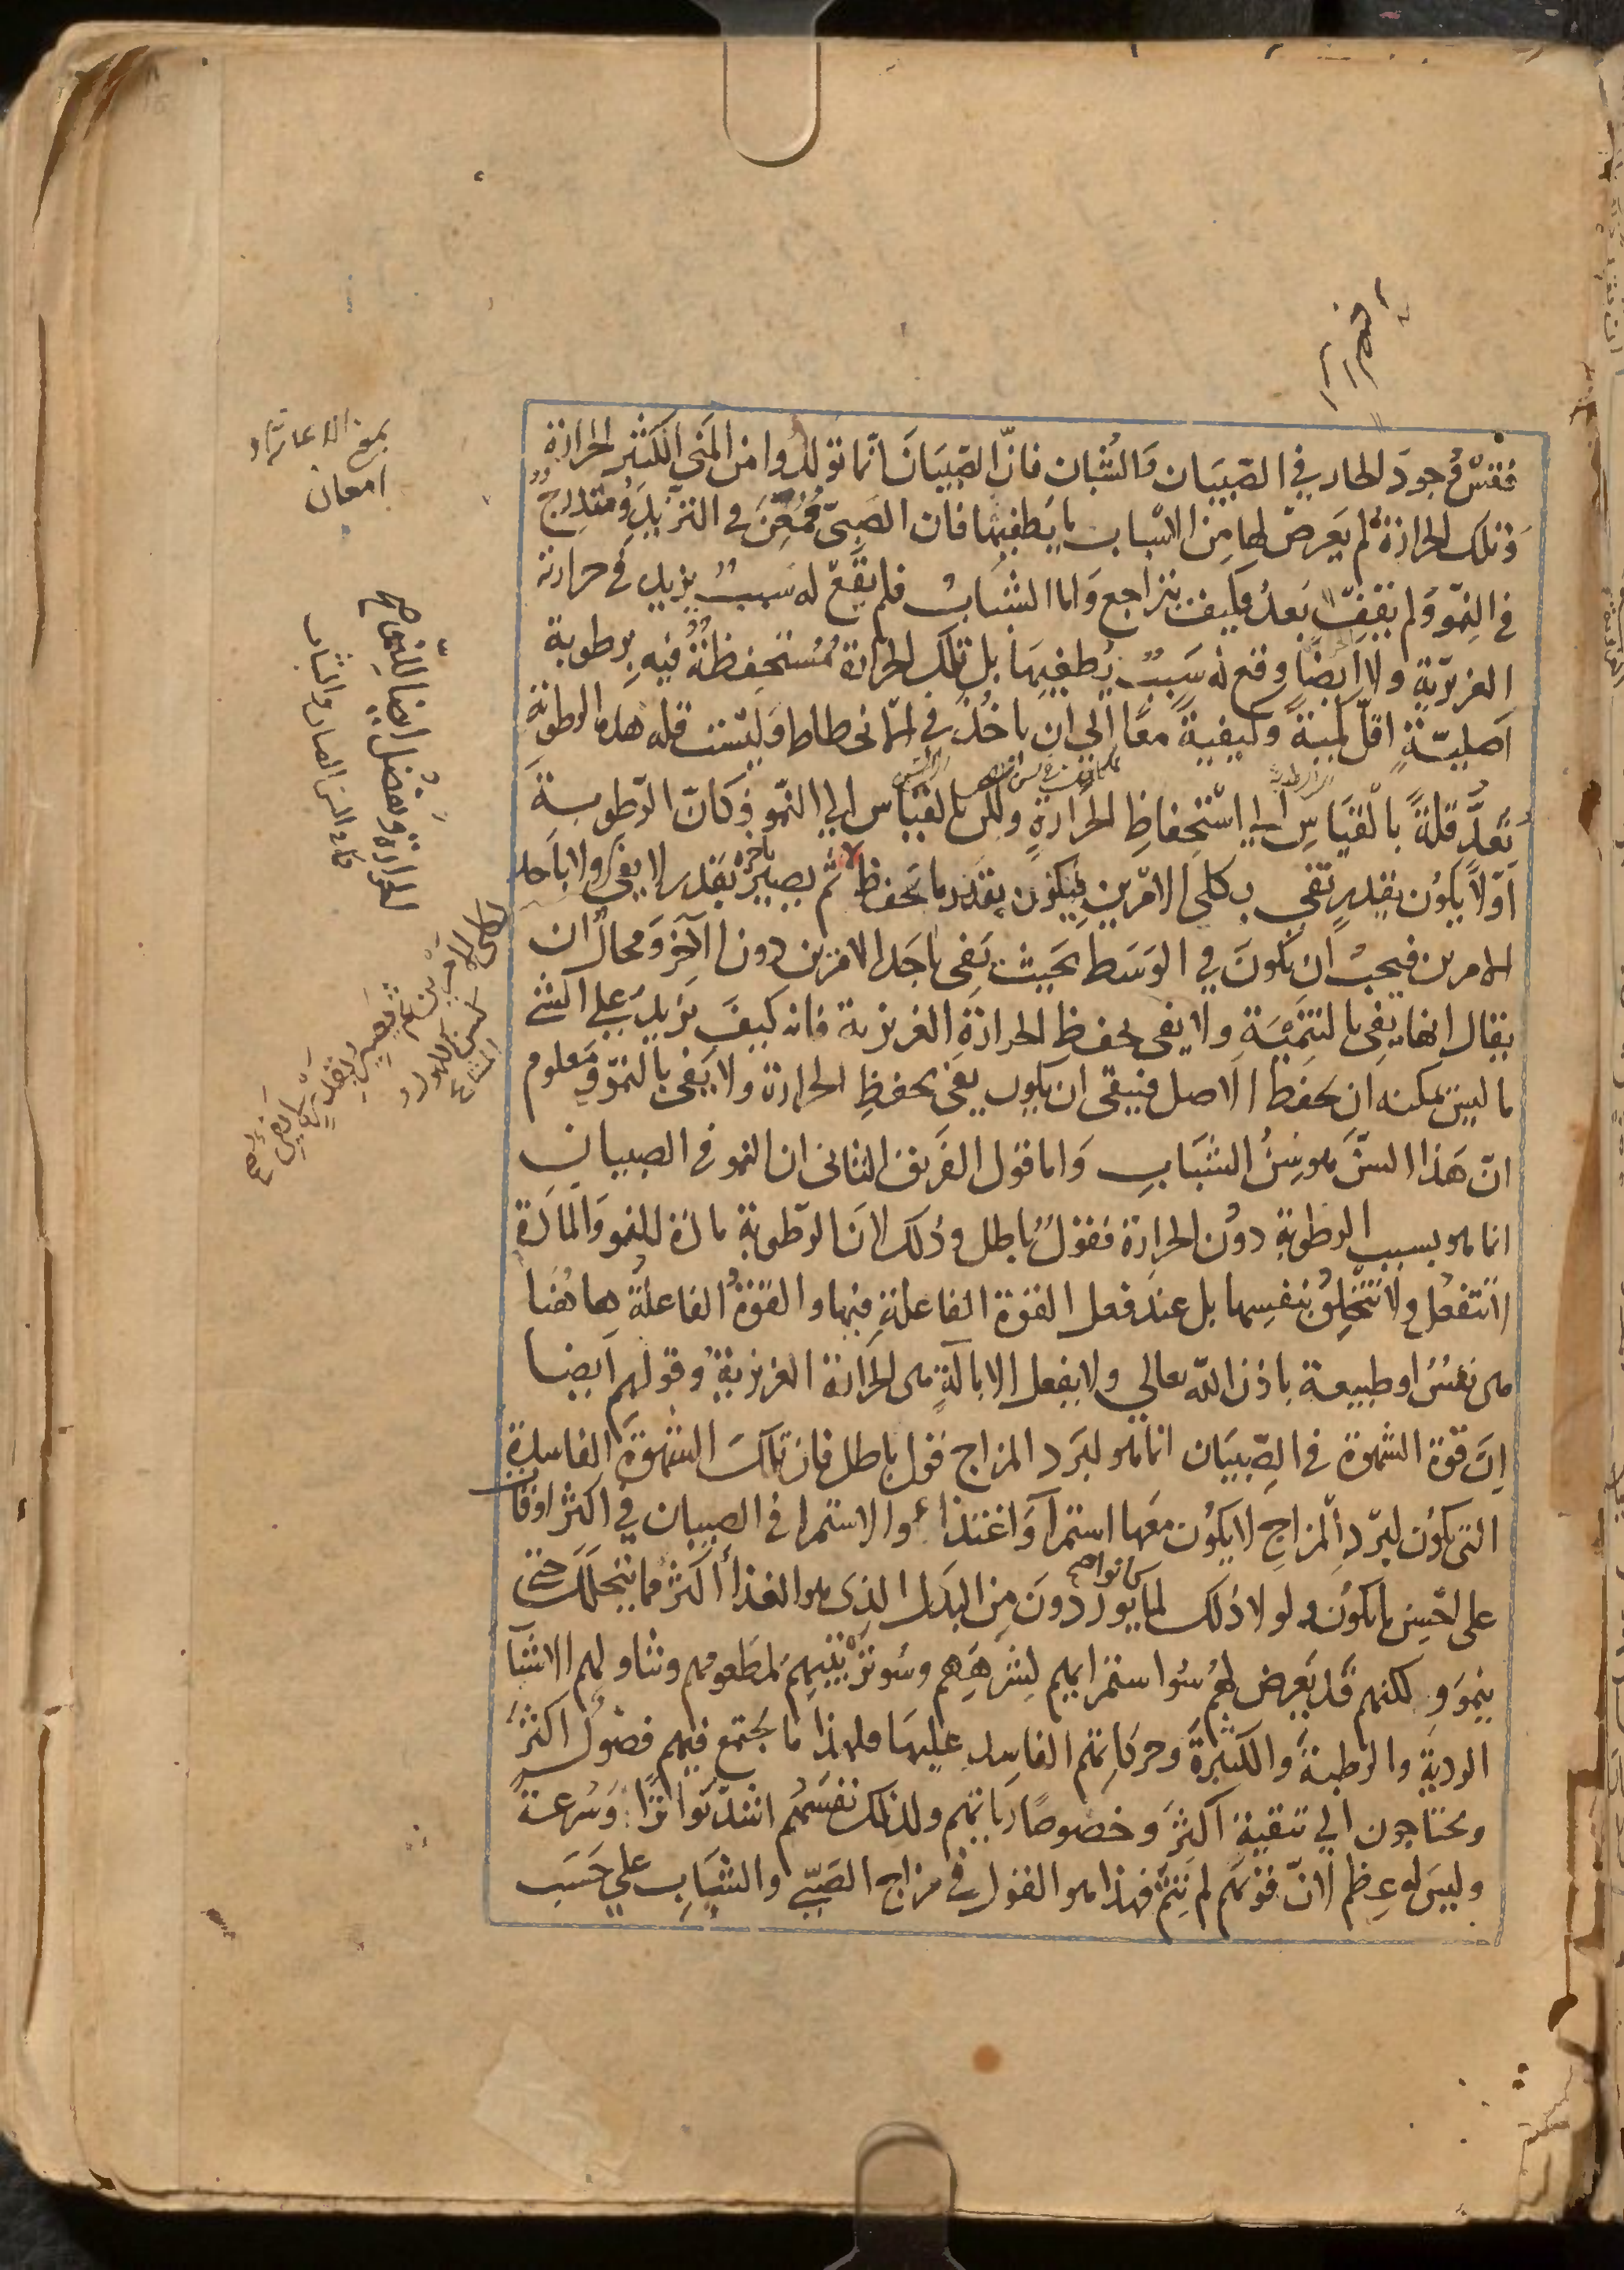 فقس وجود الحار في الصبيان والشبان فان الصبيان انما تولدوا من المني الكثير الحرارة
وتلك الحرارة لم يعرض لها من الاسباب ما يطفيها فان الصبي ممعن في التزيد ومتدرج
في النمو ولم يقف بعد فكيف يتراجع واما الشباب فلم يقع له سبب يزيد في حرارته
الغريزية ولا ايضا وقع له سبب يطفيها بل تلك الحرارة مستحفظة فيه برطوبة
اصلية اقل كمية وكيفية معا الي ان ياخذ في الانحطاط وليست قلة هذه الرطوبة
تعد قلة بالقياس الي استحفاظ الحرارة ولكن بالقياس الي النمو فكان الرطوبة
اولا يكون بقدر تفي به كلى الامرين فيكون بقدر ما تحفظ ثم يصير باخره بقدر لا يفي ولا باحد
الامرين فيجب ان يكون في الوسط بحيث تفي باحد الامرين دون الآخر ومحال ان
يقال انها يفي بالتنمية ولا يفي بحفظ الحرارة الغريزية فانه كيف يزيد علي الشي
ما ليس يمكنه ان يحفظ الاصل فبقى ان يكون يفي بحفظ الحرارة ولا يفي بالنمو ومعلوم
ان هذا السن هو سن الشباب واما قول الفريق الثاني ان النمو في الصبيان
انما هو بسبب الرطوبة دون الحرارة فقول باطل وذلك لان الرطوبة مادة للنمو والمادة
لا تنفعل ولا تتخلق بنفسها بل عند فعل القوة الفاعلة فيها والقوة الفاعلة هاهنا
هي نفس او طبيعة باذن الله تعالي ولا يفعل الا بآلة هي الحرارة الغريزية وقولهم ايضا
ان قوة الشهوة في الصبيان انما هو لبرد المزاج قول باطل فان تلك الشهوة الفاسدة
التي يكون لبرد المزاج لا يكون معها استمرآ واغتذاء والاستمرا في الصبيان في اكثر اوقات
على احسن ما يكون ولولا ذلك لما كانوا يوردون من البدل الذي هو الغذا أكثر مما يتحلل حتى
ينمو ولكنهم قد يعرض لهم سوا ستمرايهم لشرههم وسو ترتيبهم لمطعومهم وتناولهم الاشيا
الردية والرطبة والكثيرة وحركاتهم الفاسد عليها فلهذا ما يجتمع فيهم فضول اكثر
ويحتاجون الي تنقية اكثر وخصوصا رياتهم ولذلك نفسهم اشد تواترا وسرعة
وليس له عظم لان قوتهم لم تتم فهذا هو القول في مزاج الصبي والشباب علي حسب
امعان
ايضا للنمو صح
الحرارة وتفضل